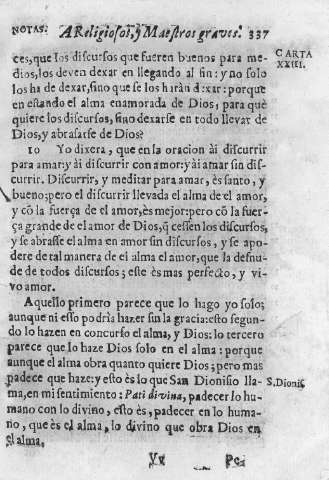 NOTAS. A Religiosos, y Maestros graves. 337
ces, que los discursos que fueren buenos para me-
dios, los deven dexar en llegando al fin: y no solo
los ha de dexar, sino que se los haràn dexar: porque
en estando el alma enamorada de Dios, para què
quiere los discursos, sino dexarse en todo llevar de
Dios, y abrasarse de Dios?
CARTA
XXIII.
10 Yo dixera, que en la oracion ài discurrir
para amar: y ài discurrir con amor: y ài amar sin dis-
currir. Discurrir, y meditar para amar, ès santo, y
bueno; pero el discurrir llevada el alma de el amor,
y cõ la fuerça de el amor, ès mejor: pero cõ la fuer-
ça grande de el amor de Dios, q̃ cessen los discursos,
y se abrasse el alma en amor sin discursos, y se apo-
dere de tal manera de el alma el amor, que la desnu-
de de todos discursos; este ès mas perfecto, y vi-
vo amor.
Aquello primero parece que lo hago yo solo;
aunque ni esso podria hazer sin la gracia: esto segun-
do lo hazen en concurso el alma, y Dios: lo tercero
parece que lo haze Dios solo en el alma: porque
aunque el alma obra quanto quiere Dios; pero mas
padece que haze: y esto ès lo que San Dionisio lla-
ma, en mi sentimiento: Pati divina, padecer lo hu-
mano con lo divino, esto ès, padecer en lo huma-
no, que ès el alma, lo divino que obra Dios en
el alma.
S. Dionis.
Vv Pe-